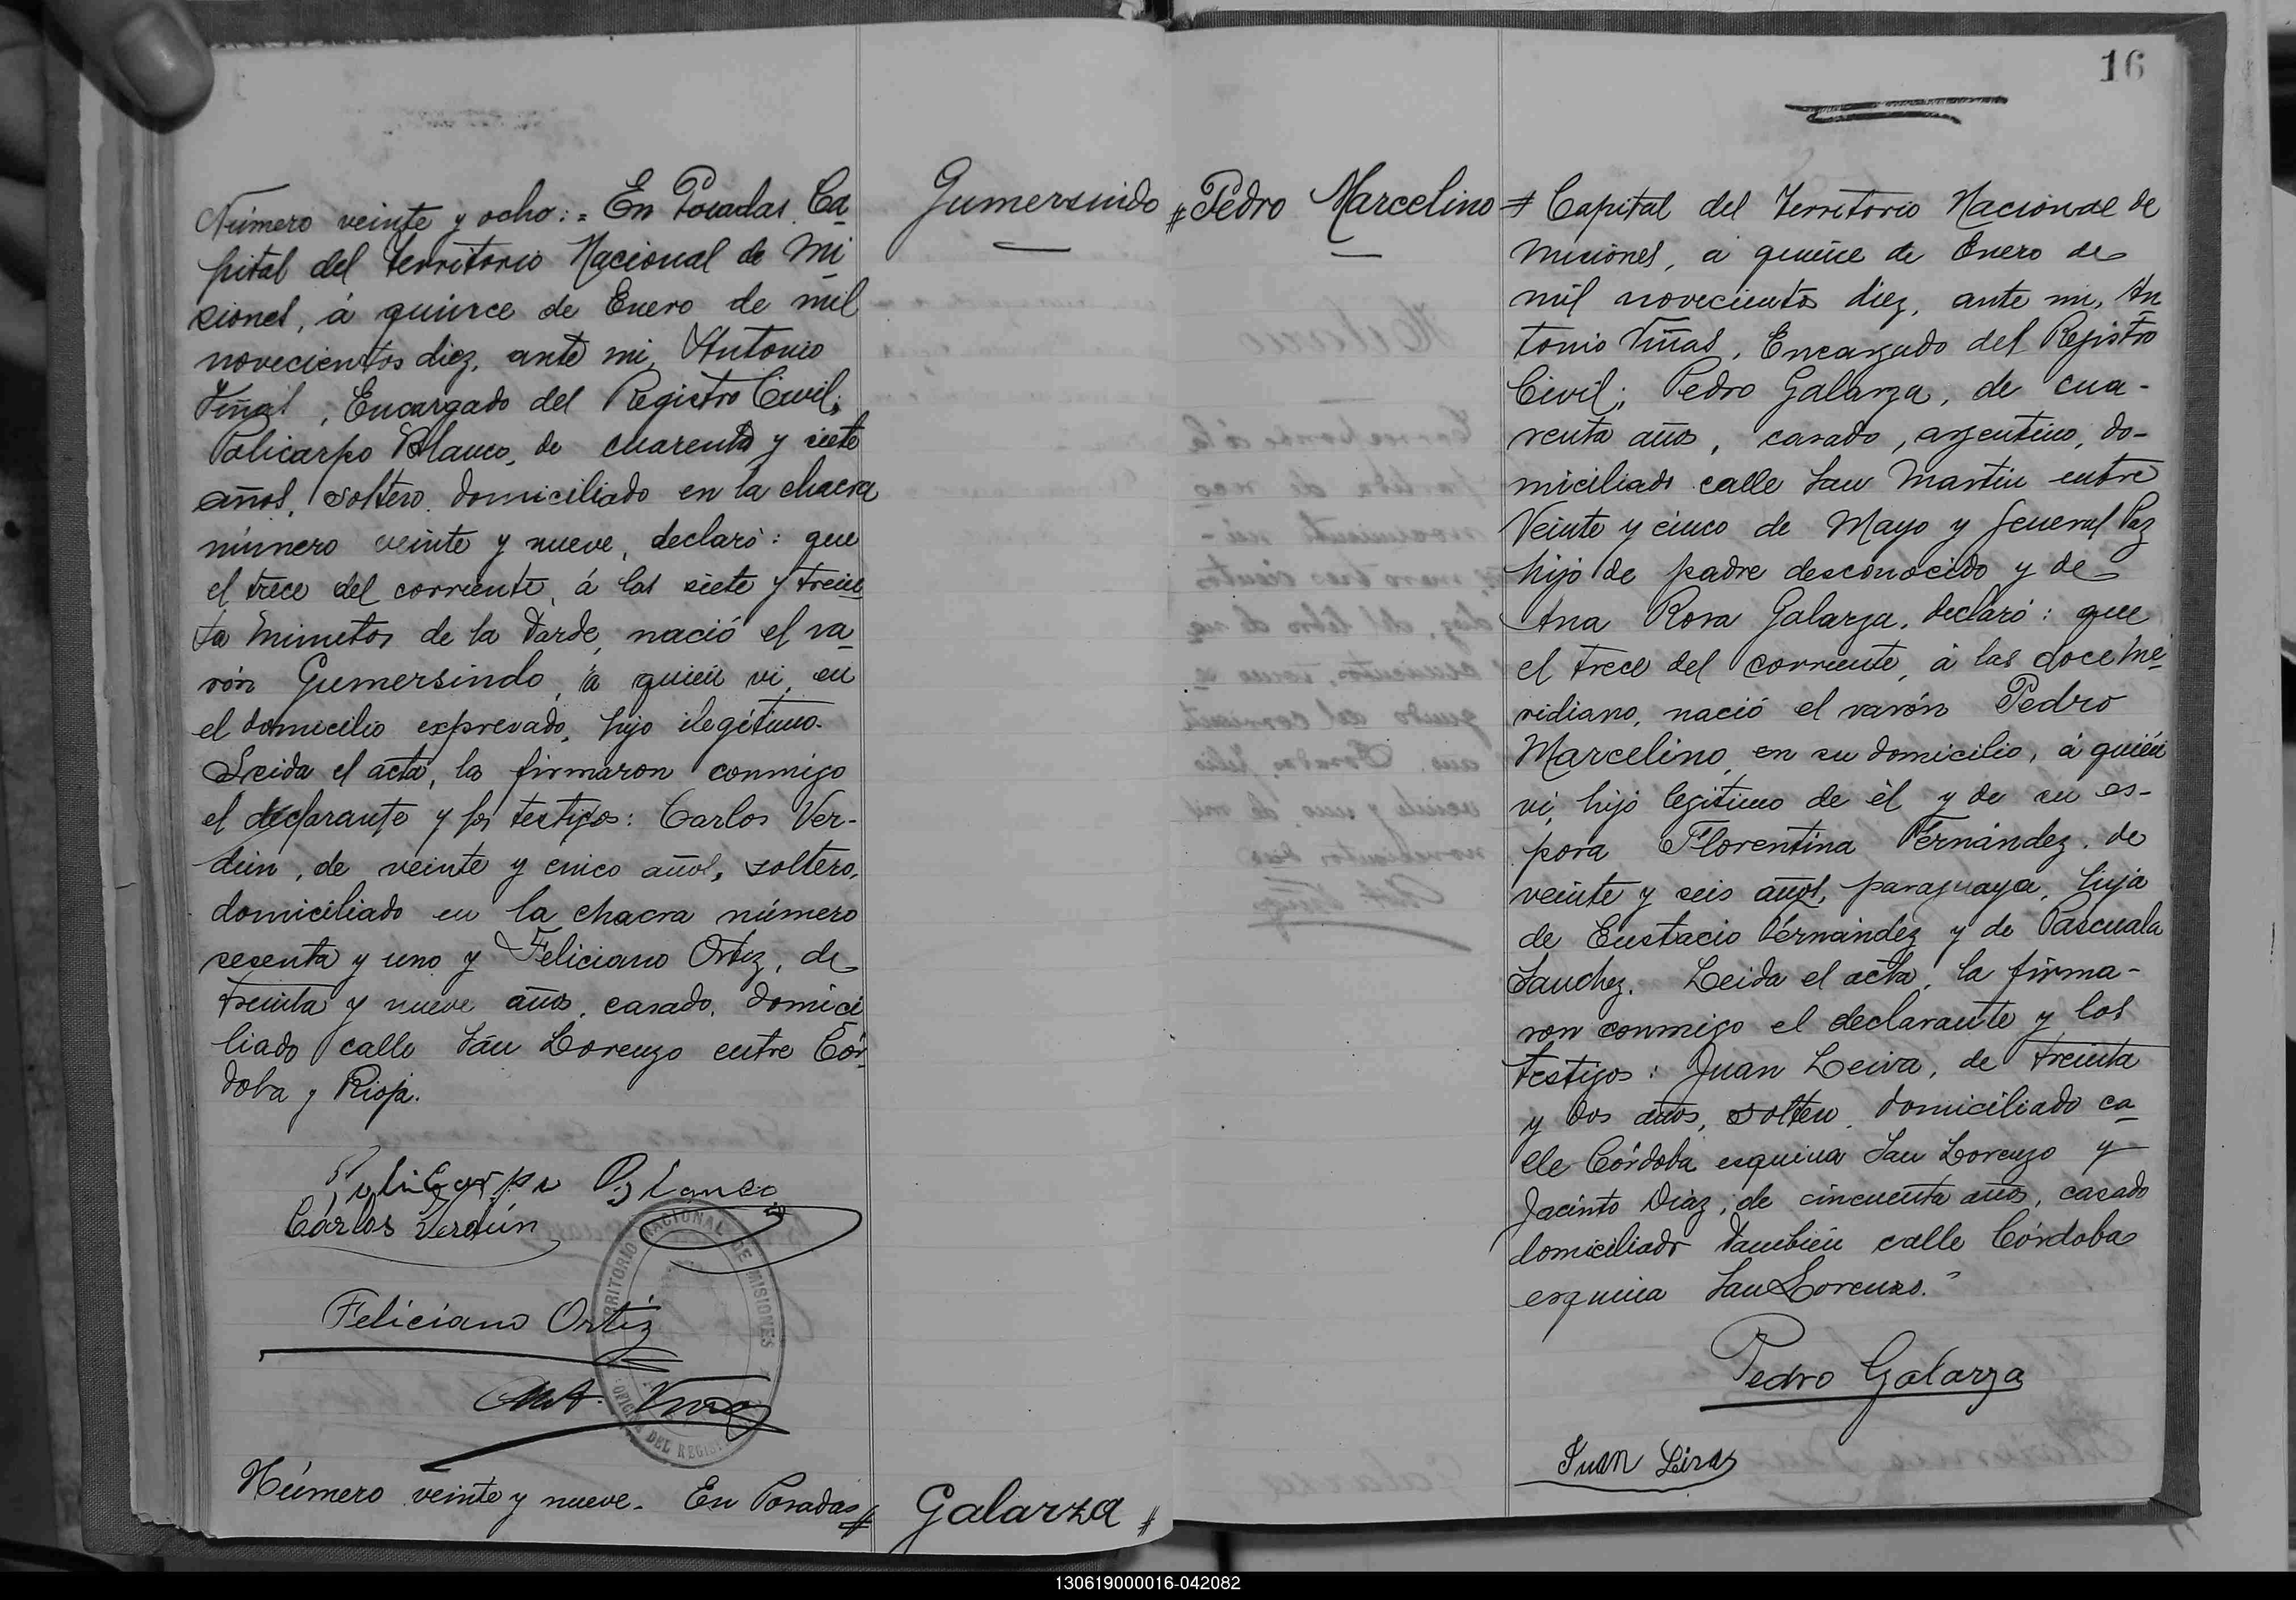 Número veinte y ocho:= En Posadas Ca
pital del Territorio Nacional de Mi
siones, á quince de Enero de mil
novecientos diez, ante mi, Antonio
Viñas, Encargado del Registro Civil;
Policarpo Blanco, de cuarenta y siete
años, soltero, domiciliado en la chacra
número veinte y nueve, declaró: que
el trece del corriente, á las siete y trein
ta minutos de la tarde, nació el va
rón Gumersindo, á quien vi, en
el domicilio expresado, hijo ilegítimo.
Leida el acta, la firmaron conmigo
el declarante y los testigos: Carlos Ver-
dún, de veinte y cinco años, soltero,
domiciliado en la chacra número
sesenta y uno y Feliciano Ortiz, de
treinta y nueve años, casado, domici
liado calle San Lorenzo entre Cór
doba y Rioja.
Policarpo Blanco
Cárlos Verdún
Feliciano Ortiz
Ant. Viñas
TERRITORIO NACIONAL DE MISIONES
OFICINA DEL REGIS
Número veinte y nueve. En Posadas #
Gumersindo
Galarza #
# Pedro Marcelino
16
# Capital del Territorio Nacional de
Misiones, á quince de Enero de
mil novecientos diez, ante mi, An
tonio Viñas, Encargado del Registro
Civil; Pedro Galarza, de cua-
renta años, casado, argentino, do-
miciliado calle San Martin entre
Veinte y cinco de Mayo y General Paz
hijo de padre desconocido y de
Ana Rosa Galarza, declaró: que
el trece del corriente, á las doce me
ridiano, nació el varón Pedro
Marcelino, en su domicilio, á quién
vi, hijo legítimo de él y de su es-
posa Florentina Fernández, de
veinte y seis años, paraguaya, hija
de Eustacio Fernández y de Pascuala
Sanchez. Leida el acta, la firma-
ron conmigo el declarante y los
testigos: Juan Leiva, de treinta
y dos años, soltero, domiciliado ca
lle Córdoba esquina San Lorenzo y
Jacinto Diaz, de cincuenta años, casado
domiciliado tambiéu calle Córdoba
esquina San Lorenzo.
Pedro Galarza
Juan Leiva
130619000016-042082